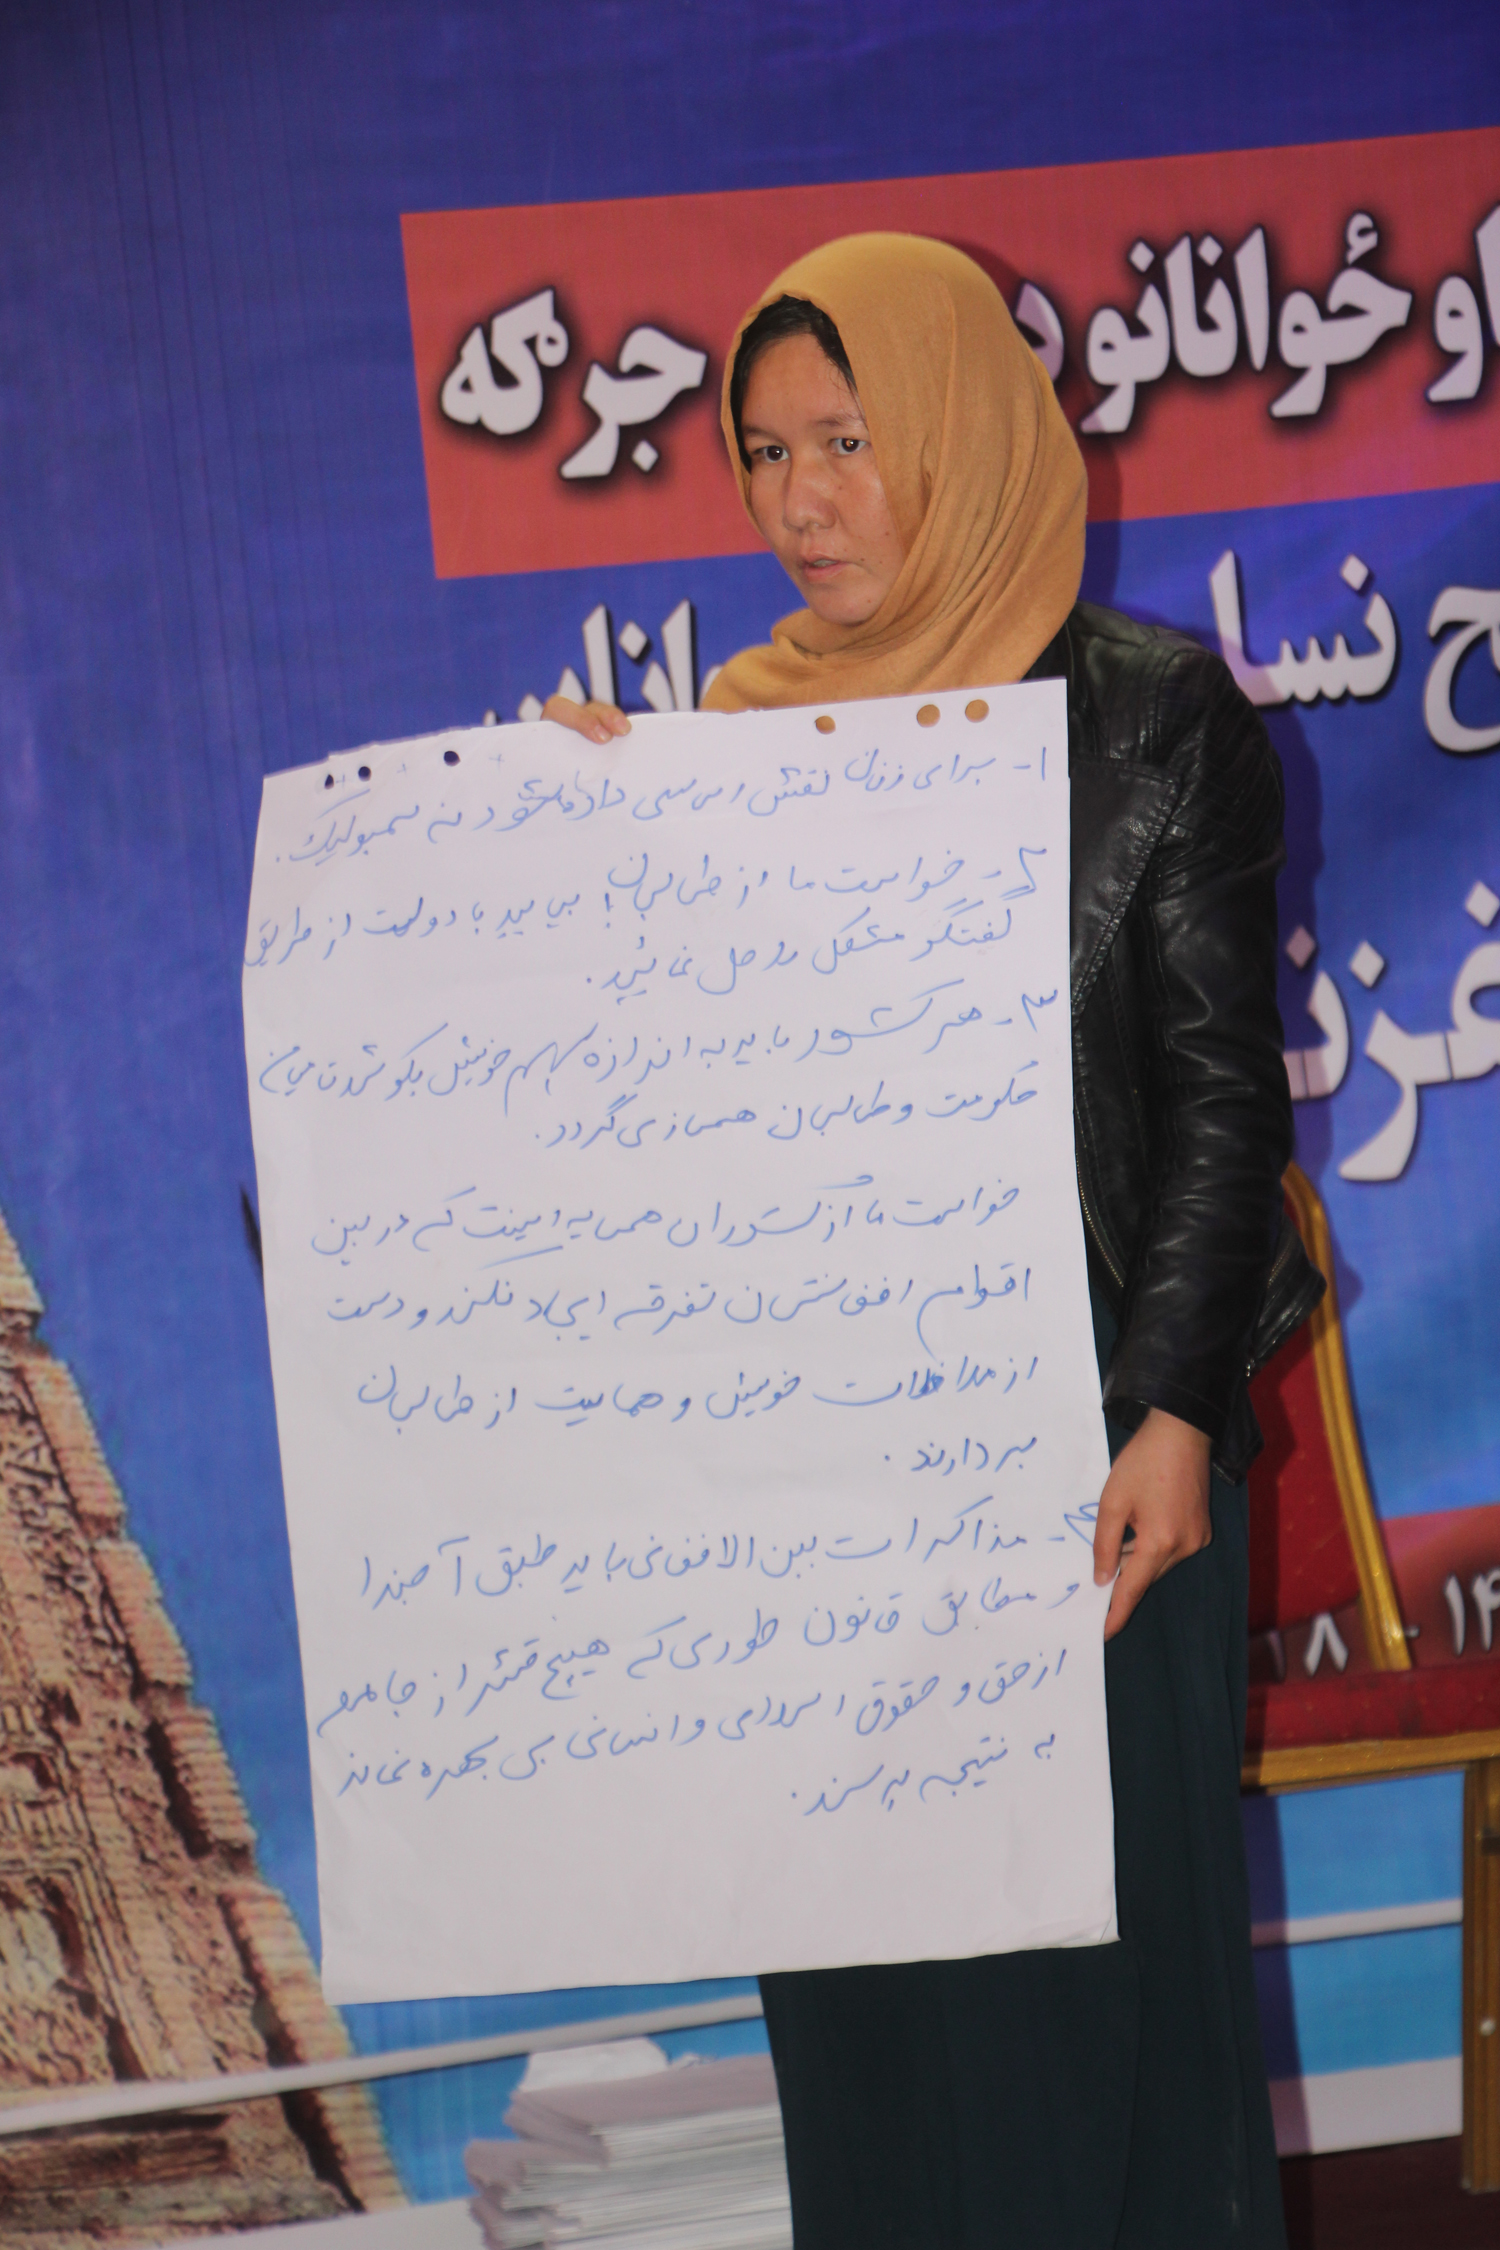 او ځوانانو د جرګه
ح نسا وانان
غزن
۱- برای زنان نقش اساسی داده شود نه سمبولیک.
۲- خواست ما از طالبان! بیایید با دولت از طریق
گفتگو مشکل را حل نمائید.
۳- هر کشور باید به اندازه سهم خویش بکوشد تا میان
حکومت و طالبان همسازی گردد.
خواست ما از کشوران همسایه اینست که در بین
اقوام افغانستان تفرقه ایجاد نکنند و دست
از مداخلات خویش و حمایت از طالبان
بردارند.
۴- مذاکرات بین الافغانی باید طبق آجندا
و مطابق قانون طوری که هیچ قشر از جامعه
از حق و حقوق اسلامی و انسانی بی بهره نماند
به نتیجه برسند.